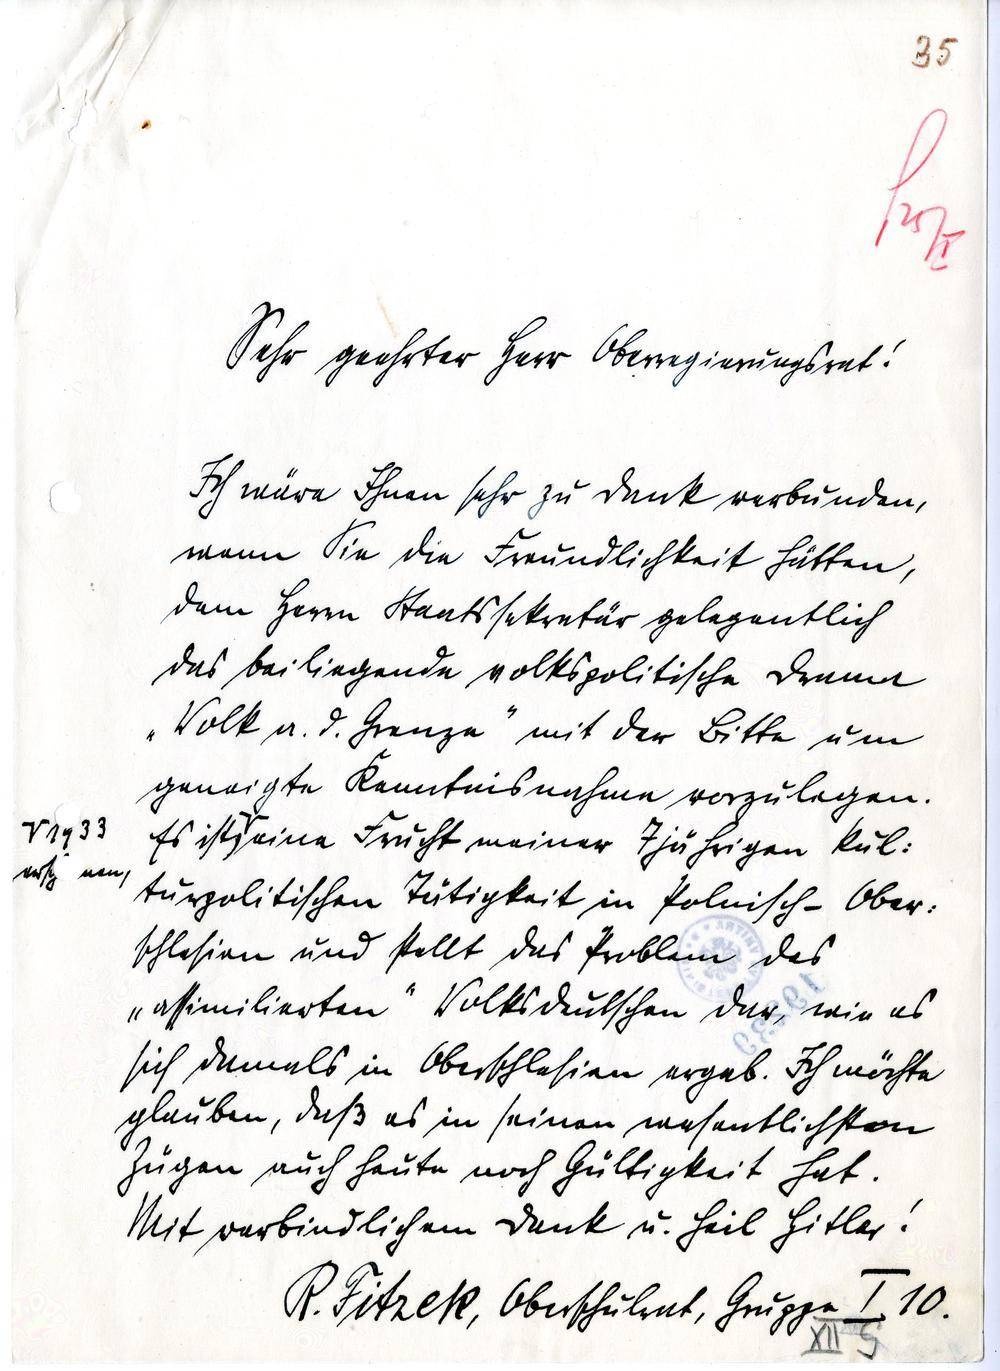 35
25/X
Sehr geehrter Herr Oberregierungsrat!
Ich wäre Ihnen sehr zu Dank verbunden,
wenn Sie die Freundlichkeit hätten,
dem Herrn Staatssekretär gelegentlich
das beiliegende volkspolitische Drama
„Volk a. d. Grenze" mit der Bitte um
geneigte Kenntnisnahme vorzulegen.
Es ist eine Frucht meiner 7jährigen kul:
1933
turpolitischen Tätigkeit in Polnisch- Ober:
schlesien und stellt das Problem des
„assimilierten" Volksdeutschen dar, wie es
sich damals in Oberschlesien ergab. Ich möchte
glauben, daß es in seinen wesentlichsten
Zügen auch heute noch Gültigkeit hat.
Mit verbindlichem Dank u. Heil Hitler!
R. Fitzek, Oberschulrat, Gruppe I 10.
XII 5